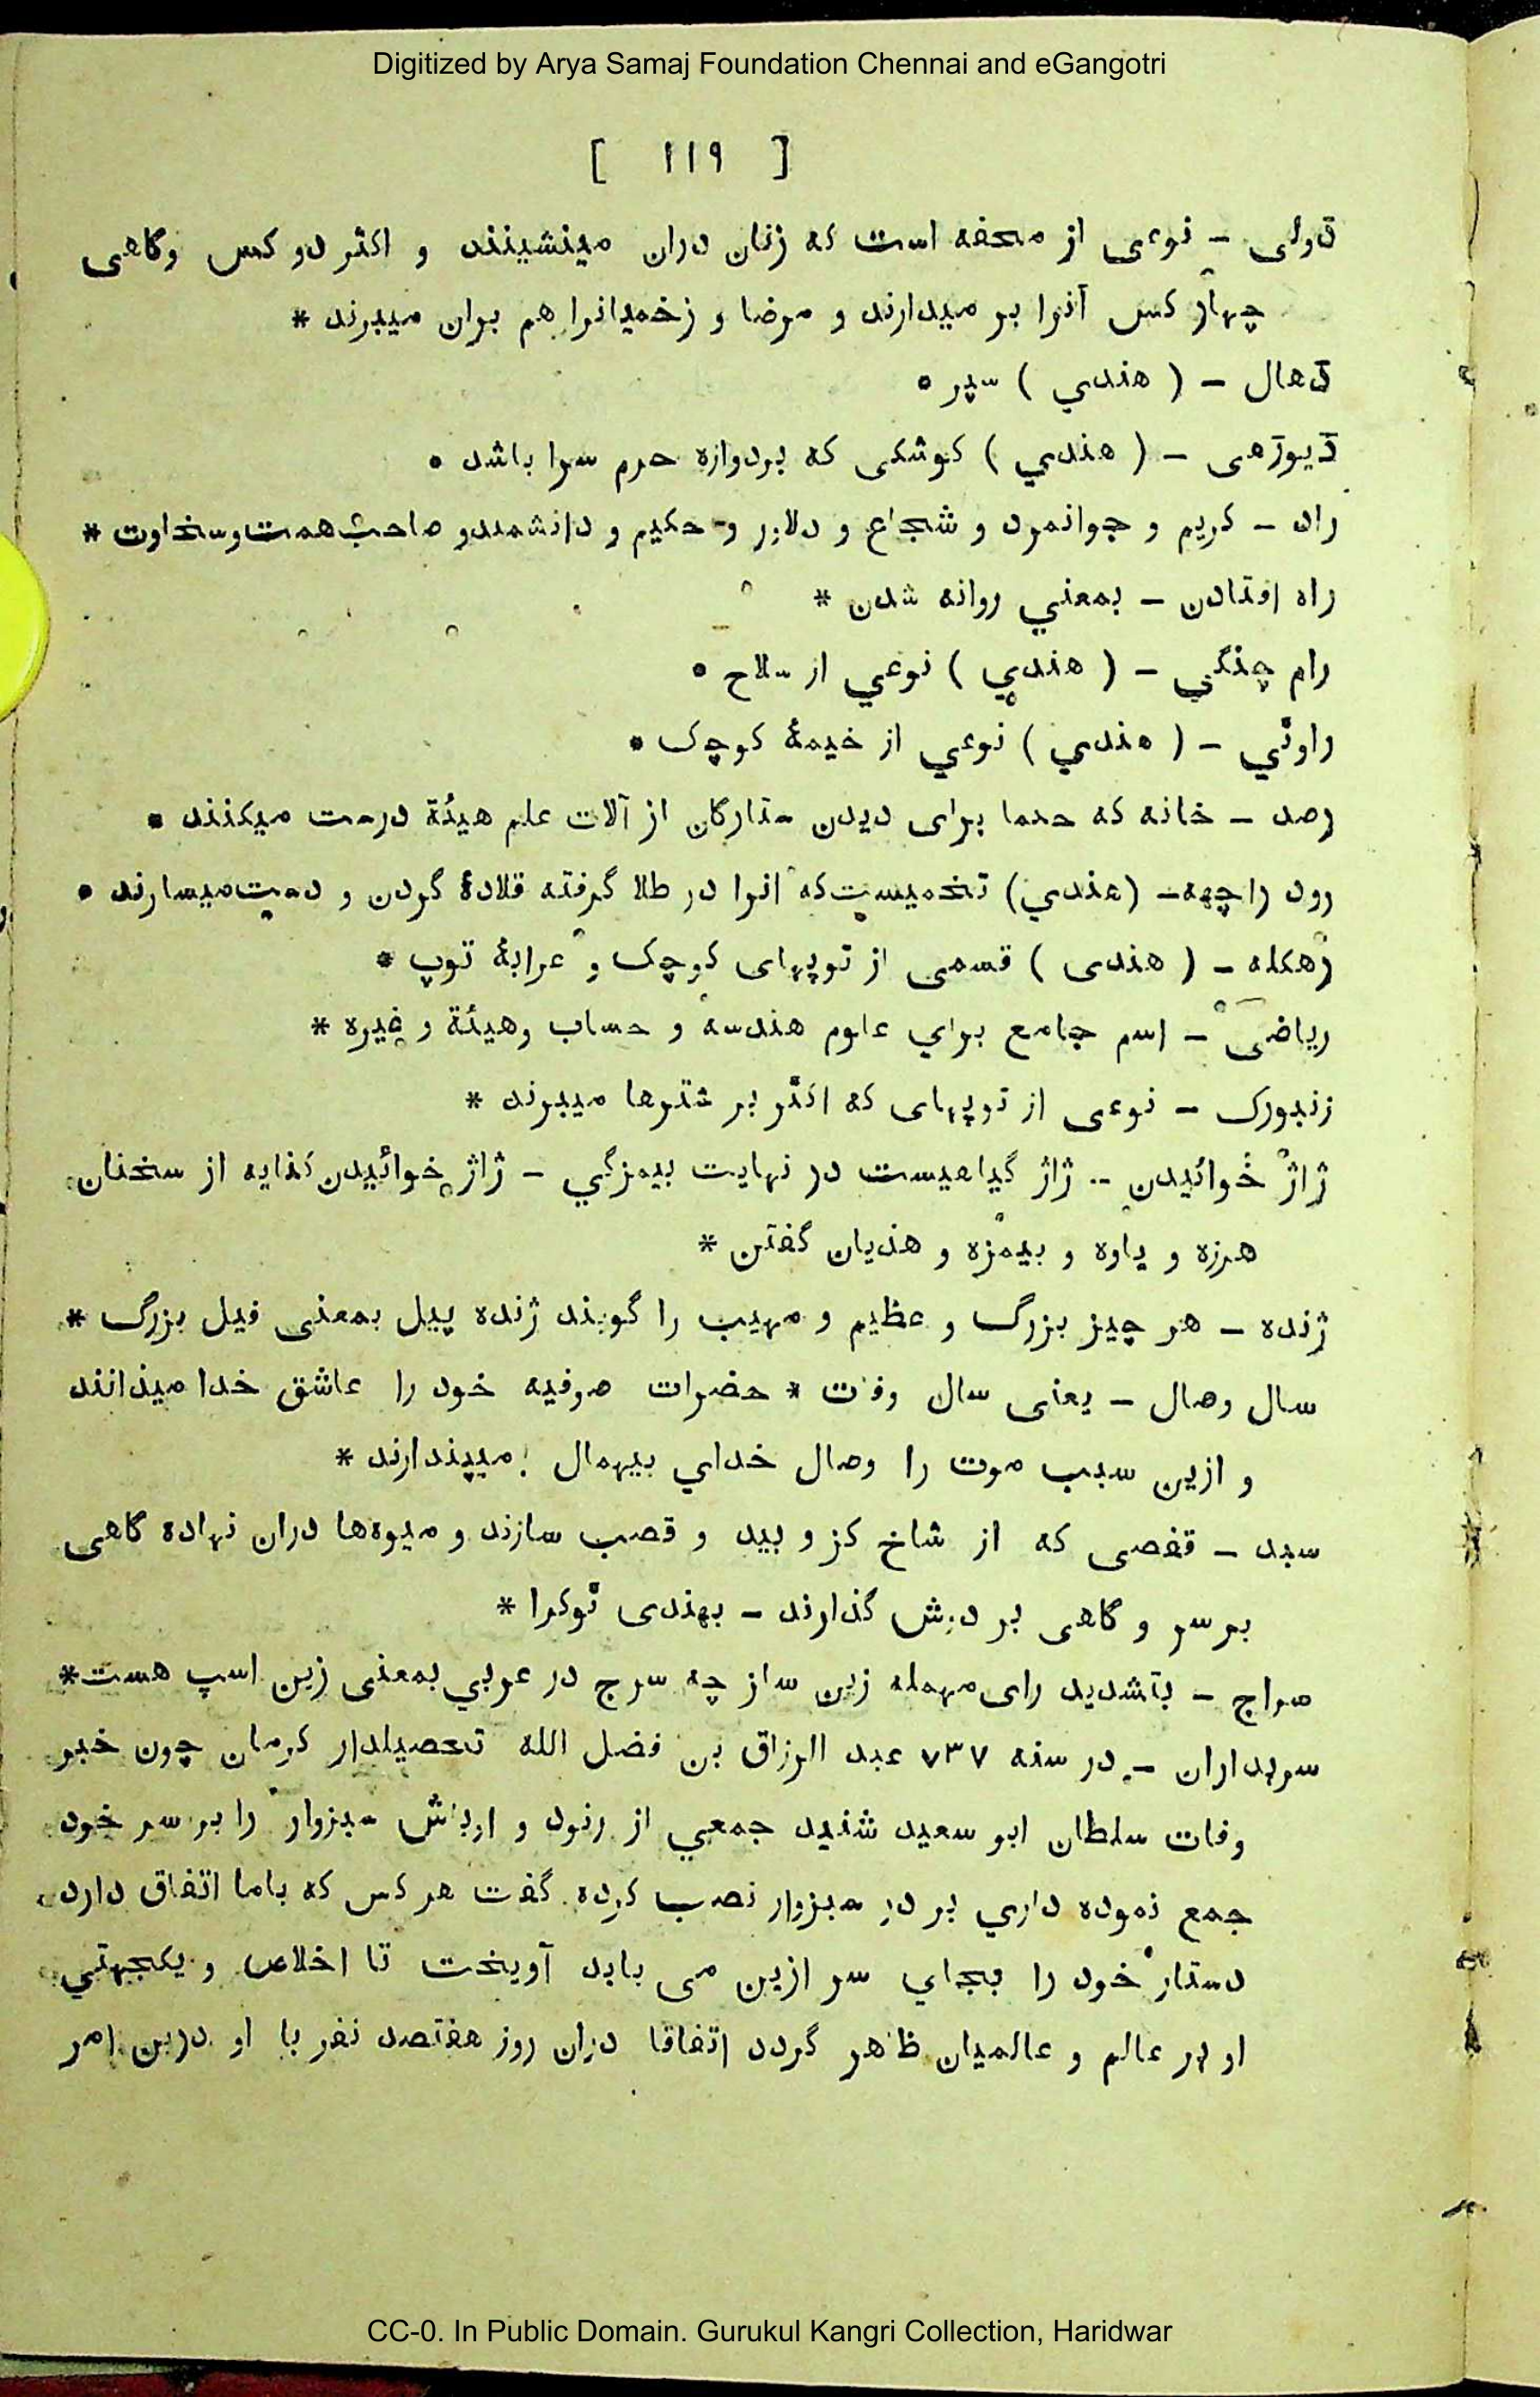 Digitized by Arya Samaj Foundation Chennai and eGangotri
[ ۱۱۹ ]
ڈولی - نوعی از محفه است که زنان دران مینشینند و اکثر دو کس وگاهی
چهار کس آنرا بر میدارند و مرضا و زخمیانرا هم بران میبرند *
ڈهال - ( هندي ) سپر *
ڈیوڑهی - ( هندي ) کوشکی که بردوازه حرم سرا باشد *
راد - کریم و جوانمرد و شجاع و دلاور و حکیم و دانشمند و صاحب همت و سخاوت *
راه افتادن - بمعني روانه شدن *
رام چنگي - ( هندي ) نوعي از سلاح *
راوٹي - ( هندي ) نوعي از خیمۀ کوچک *
رصد - خانه که حکما برای دیدن ستارگان از آلات علم هیئة درست میکنند *
رود راچهه - (هندي) تخمیست که انرا در طلا گرفته قلادۀ گردن و دست میسازند *
رهکله - ( هندی ) قسمی از توپهای کوچک و عرابۀ توپ *
ریاضی - اسم جامع براي علوم هندسه و حساب وهیئة و غیره *
زنبورک - نوعی از توپهای که اکثر بر شترها میبرند *
ژاژ خوائیدن - ژاژ گیاهیست در نهایت بیمزگي - ژاژ خوائیدن کنایه از سخنان
هرزه و یاوه و بیمزه و هذیان گفتن *
ژنده - هر چیز بزرگ و عظیم و مهیب را گویند ژنده پیل بمعنی فیل بزرگ *
سال وصال - یعنی سال وفات * حضرات صوفیه خود را عاشق خدا میدانند
و ازین سبب موت را وصال خداي بیهمال میپندارند *
سبد - قفصی که از شاخ کز و بید و قصب سازند و میوه‌ها دران نهاده گاهی
بر سر و گاهی بر دوش گذارند - بهندی ٹوکرا *
سراج - بتشدید رای مهمله زین ساز چه سرج در عربي بمعنی زین اسپ هست *
سربداران - در سنه ۷۳۷ عبد الرزاق بن فضل الله تحصیلدار کرمان چون خبر
وفات سلطان ابو سعید شنید جمعي از رنود و اوباش سبزوار را بر سر خود
جمع نموده داري بر در سبزوار نصب کرده گفت هر کس که باما اتفاق دارد
دستار خود را بجاي سر ازین می باید آویخت تا اخلاص و یکجهتي
او بر عالم و عالمیان ظاهر گردد اتفاقا دران روز هفتصد نفر با او درین امر
CC-0. In Public Domain. Gurukul Kangri Collection, Haridwar